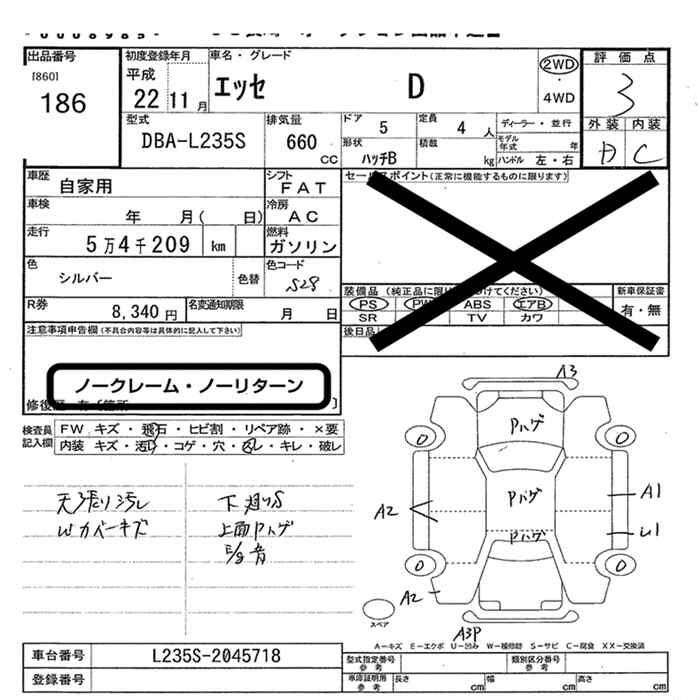 出品番号
[860]
186
初度登録年月
平成
22 11 月
車名・グレード
エッセ D
2WD
・
4WD
評価点
3
外装 内装
C
型式
DBA-L235S
排気量
660 cc
ドア 5
定員 4 人
ディーラー・並行
形状 ハッチB
積載 kg
モデル年式 年
ハンドル 左・右
車歴 自家用
シフト FAT
セールスポイント(正常に機能するものに限ります)
車検 年 月( 日)
冷房 AC
走行 5万4千209 km
燃料 ガソリン
色 シルバー 色替
色コード S28
R券 8,340 円
名変通知期限 月 日
装備品(純正品に限り
けてください)
PS PW ABS エアB
SR TV カワ
新車保証書
有・無
後日品
注意事項申告欄(不具合内容等は具体的に記入して下さい)
ノークレーム・ノーリターン
修復歴
検査員記入欄
FW キズ・飛石・ヒビ割・リペア跡・×要
内装 キズ・汚れ・コゲ・穴・スレ・キレ・破レ
天張り汚れ
Wカバーキズ
下廻りS
上面Pハゲ
A3
Pハゲ
Pハゲ
Pハゲ
A1
A2
A2
A3P
スペア
A=キズ E=エクボ U=凹み W=補修跡 S=サビ C=腐食 XX=交換済
車台番号 L235S-2045718
登録番号
型式指定番号 参考
類別区分番号 参考
車庫証明用 参考
長さ cm
幅 cm
高さ cm